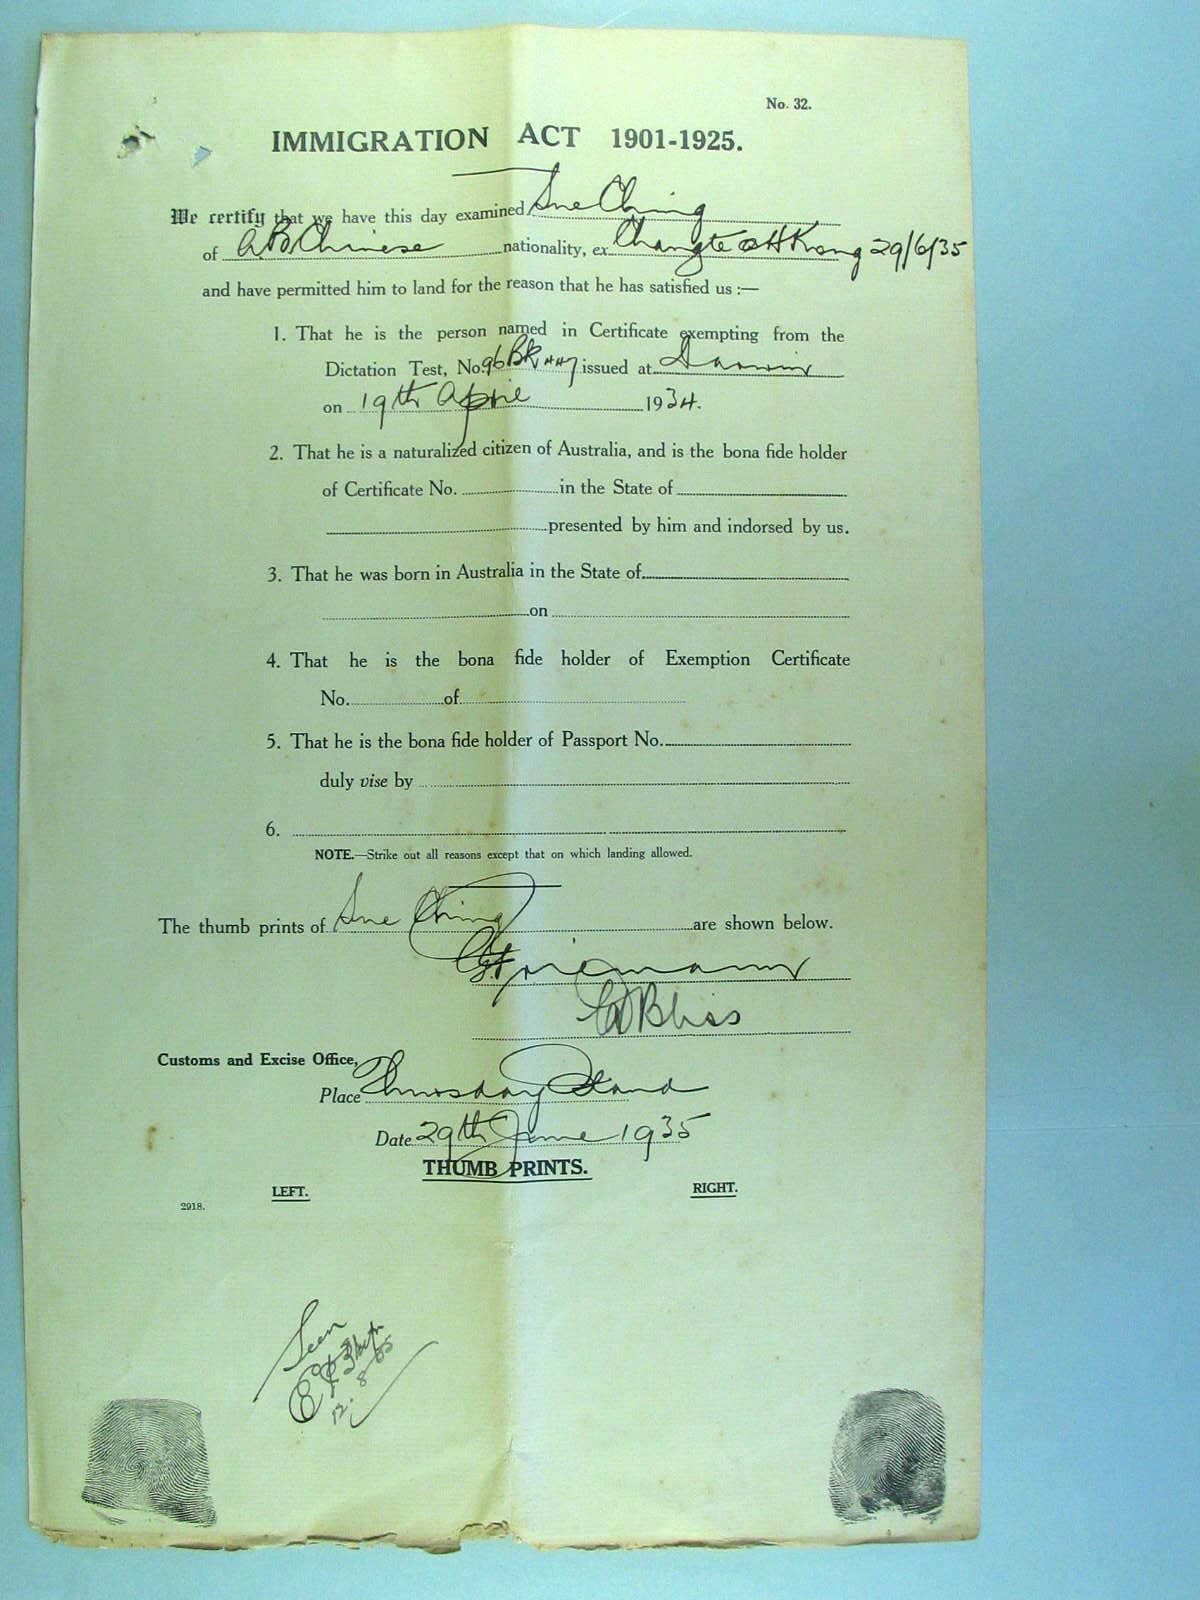 No. 32.
IMMIGRATION ACT 1901-1925.
We certify that we have this day examined Sue Ching
of ABChinese nationality, ex Changte HKong 29/6/35
and have permitted him to land for the reason that he has satisfied us :—
1. That he is the person named in Certificate exempting from the
Dictation Test, No. 96 Bk issued at Darwin
on 19th April 1934.
2. That he is a naturalized citizen of Australia, and is the bona fide holder
of Certificate No. in the State of
presented by him and indorsed by us.
3. That he was born in Australia in the State of
on
4. That he is the bona fide holder of Exemption Certificate
No. of
5. That he is the bona fide holder of Passport No.
duly vise by
6.
NOTE.—Strike out all reasons except that on which landing allowed.
The thumb prints of Sue Ching are shown below.
Bliss
Customs and Excise Office,
Place Thursday Island
Date 29th June 1935
THUMB PRINTS.
LEFT. RIGHT.
2918.
Seen
12.8.35